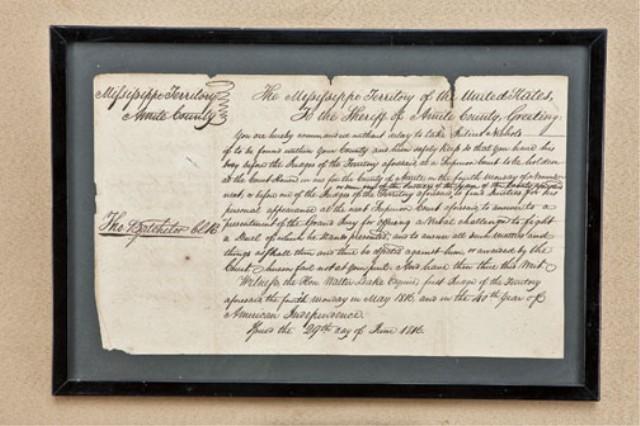 Mississippi Territory
Amite County
The Mississippi Territory of the United States,
To the Sheriff of Amite County, Greeting:
You are hereby commanded without delay to take Nichols
if to be found within your County and him safely keep so that you have his
body before the Judges of the Territory aforesaid at a Superior Court to be holden
at the Court House in and for the County of Amite on the fourth Monday of
next, or before one of the Judges of the Territory aforesaid, to find for his
personal appearance at the next Superior Court aforesaid to answer to a
presentment of the Grand Jury for a Verbal challenge to fight
a Duel of which he stands presented, and to answer all such matters and
things as shall then and there be objected against him, or awarded by the
Court, herein fail not at your peril. And have then there this Writ
Witness, the Hon. Walter Leake Esquire first Judge of the Territory
aforesaid the fourth monday in May 1816 and in the 40th Year of
American Independence
Issued the 29th day of June 1816.
The Batchelor Clk